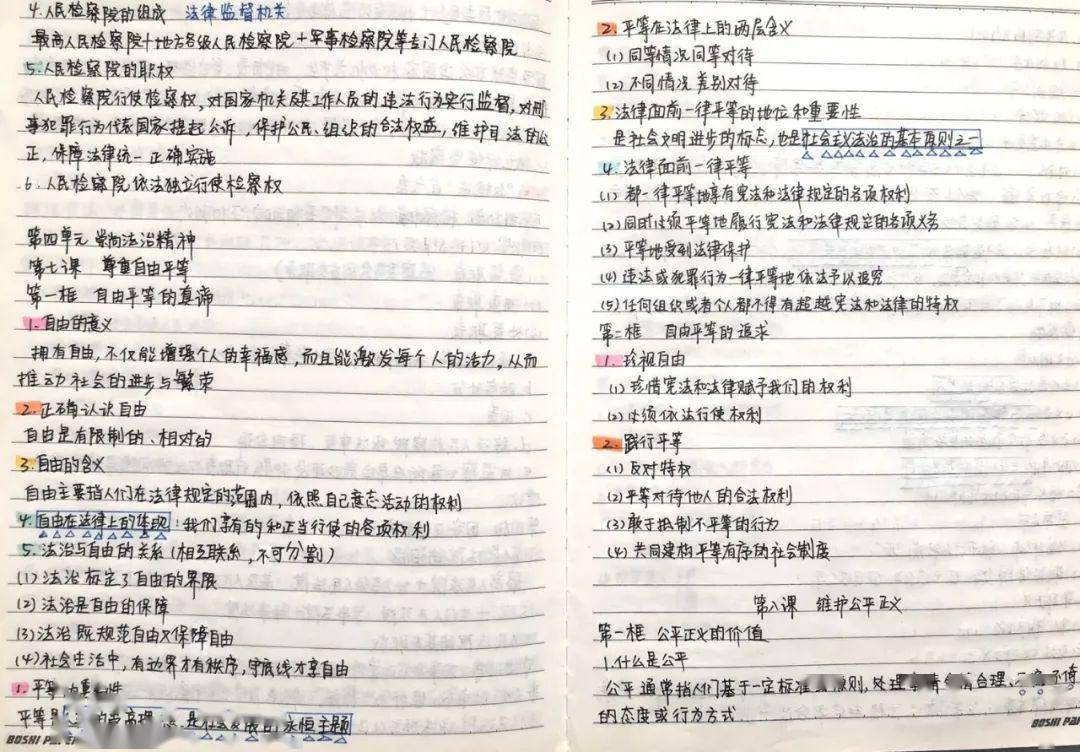 4.人民检察院的组成 法律监督机关
最高人民检察院+地方各级人民检察院+军事检察院等专门人民检察院
5.人民检察院的职权
人民检察院行使检察权,对国家机关及其工作人员的违法行为实行监督,对刑
事犯罪行为代表国家提起公诉,保护公民、组织的合法权益,维护司法的公
正,保障法律统一正确实施
6.人民检察院依法独立行使检察权
第四单元 崇尚法治精神
第七课 尊重自由平等
第一框 自由平等的真谛
1.自由的意义
拥有自由,不仅能增强个人的幸福感,而且能激发每个人的活力,从而
推动社会的进步与繁荣
2.正确认识自由
自由是有限制的、相对的
3.自由的含义
自由主要指人们在法律规定的范围内,依照自己意志活动的权利
4.自由在法律上的体现:我们享有的和正当行使的各项权利
5.法治与自由的关系(相互联系,不可分割)
(1)法治标定了自由的界限
(2)法治是自由的保障
(3)法治既规范自由又保障自由
(4)社会生活中,有边界才有秩序,守底线才享自由
1.平等 性
平等是 是社会发展的永恒主题
BOSHI PAPER
2.平等在法律上的两层含义
(1)同等情况同等对待
(2)不同情况差别对待
3.法律面前一律平等的地位和重要性
是社会文明进步的标志,也是社会主义法治的基本原则之一
4.法律面前一律平等
(1)都一律平等地享有宪法和法律规定的各项权利
(2)同时必须平等地履行宪法和法律规定的各项义务
(3)平等地受到法律保护
(4)违法或犯罪行为一律平等地依法予以追究
(5)任何组织或者个人都不得有超越宪法和法律的特权
第二框 自由平等的追求
1.珍视自由
(1)珍惜宪法和法律赋予我们的权利
(2)必须依法行使权利
2.践行平等
(1)反对特权
(2)平等对待他人的合法权利
(3)敢于抵制不平等的行为
(4)共同建构平等有序的社会制度
第八课 维护公平正义
第一框 公平正义的价值
1.什么是公平
公平通常指人们基于一定标准 原则,处理 合理、
的态度或行为方式
BOSHI PA